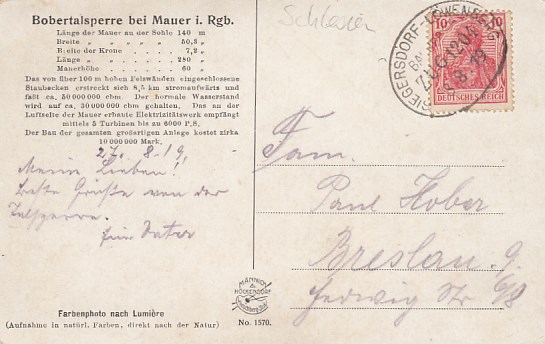 Bobertalsperre bei Mauer i. Rgb.
Länge der Mauer an der Sohle 140 m
Breite „ „ „ „ 50,5 „
Breite der Krone „ „ 7,2 „
Länge „ „ „ 280 „
Mauerhöhe „ „ 60 „
Das von über 100 m hohen Felswänden eingeschlossene
Staubecken erstreckt sich 8,5 km stromaufwärts und
faßt ca. 50 000 000 cbm. Der normale Wasserstand
wird auf ca. 30 000 000 cbm gehalten. Das an der
Luftseite der Mauer erbaute Elektrizitätswerk empfängt
mittels 5 Turbinen bis zu 6000 P.S.
Der Bau der gesamten großartigen Anlage kostet zirka
10 000 000 Mark.
27. 8 - 19.
Meine Lieben!
Beste Grüße von der
Talsperre.
Vater
Farbenphoto nach Lumière
(Aufnahme in natürl. Farben, direkt nach der Natur)
MÄNNICH
&
HÖCKENDORF
No. 1570.
Schlesien
SIEGERSDORF-LÖWENBERG
ZUG 1204
8.19
10 10
DEUTSCHES REICH
Fam.
Paul Hober
Breslau 9.
Hedwig Str 68